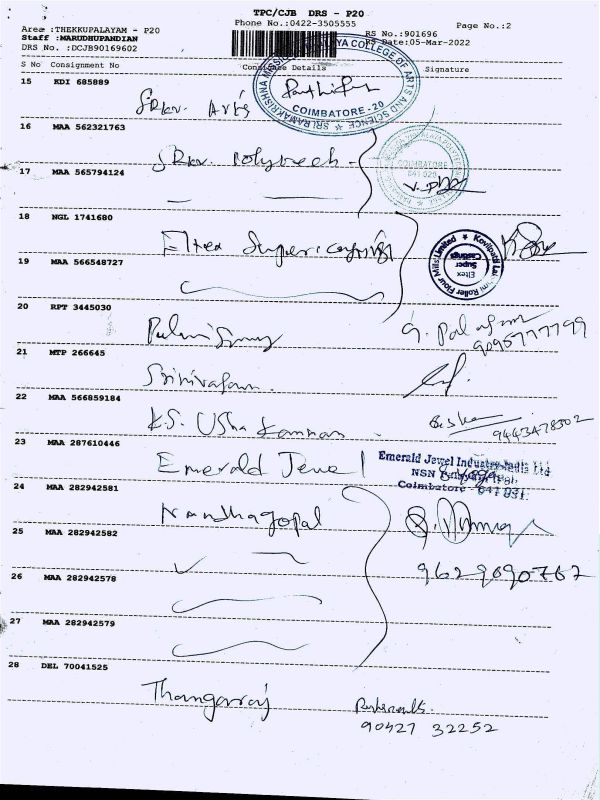 TPC/CJB DRS - P20
Phone No.:0422-3505555
Page No.:2
Area :THEKKUPALAYAM - P20
RS No.:901696
Staff :MARUDHUPANDIAN
Date:05-Mar-2022
DRS No. :DCJB90169602
S No Consignment No Consignee Details Signature
15 KDI 685889
SRKV. Arts
COIMBATORE - 20
16 MAA 562321763
SRKV. Polytech
COIMBATORE
641 020
17 MAA 565794124
18 NGL 1741680
Eltex Super castings
Eltex Super Castings
19 MAA 566548727
20 RPT 3445030
21 MTP 266645
Srinivasan.
22 MAA 566859184
K.S. Usha Kannan
9443478302
23 MAA 287610446
Emerald Jewel
Emerald Jewel Industry India Ltd
24 MAA 282942581
Nandhagopal
25 MAA 282942582
9629090762
26 MAA 282942578
27 MAA 282942579
28 DEL 70041525
Thangaraj
90427 32252